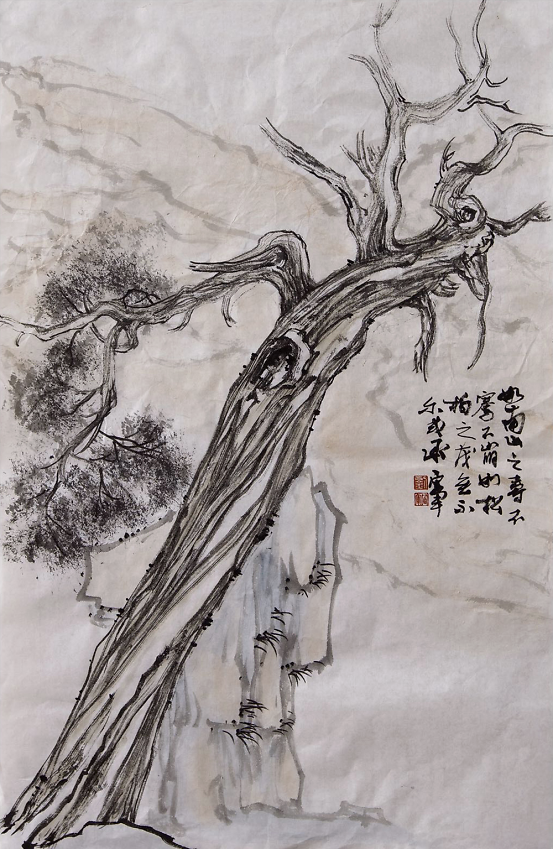 如南山之寿不
骞不崩如松
柏之茂无不
尔或承